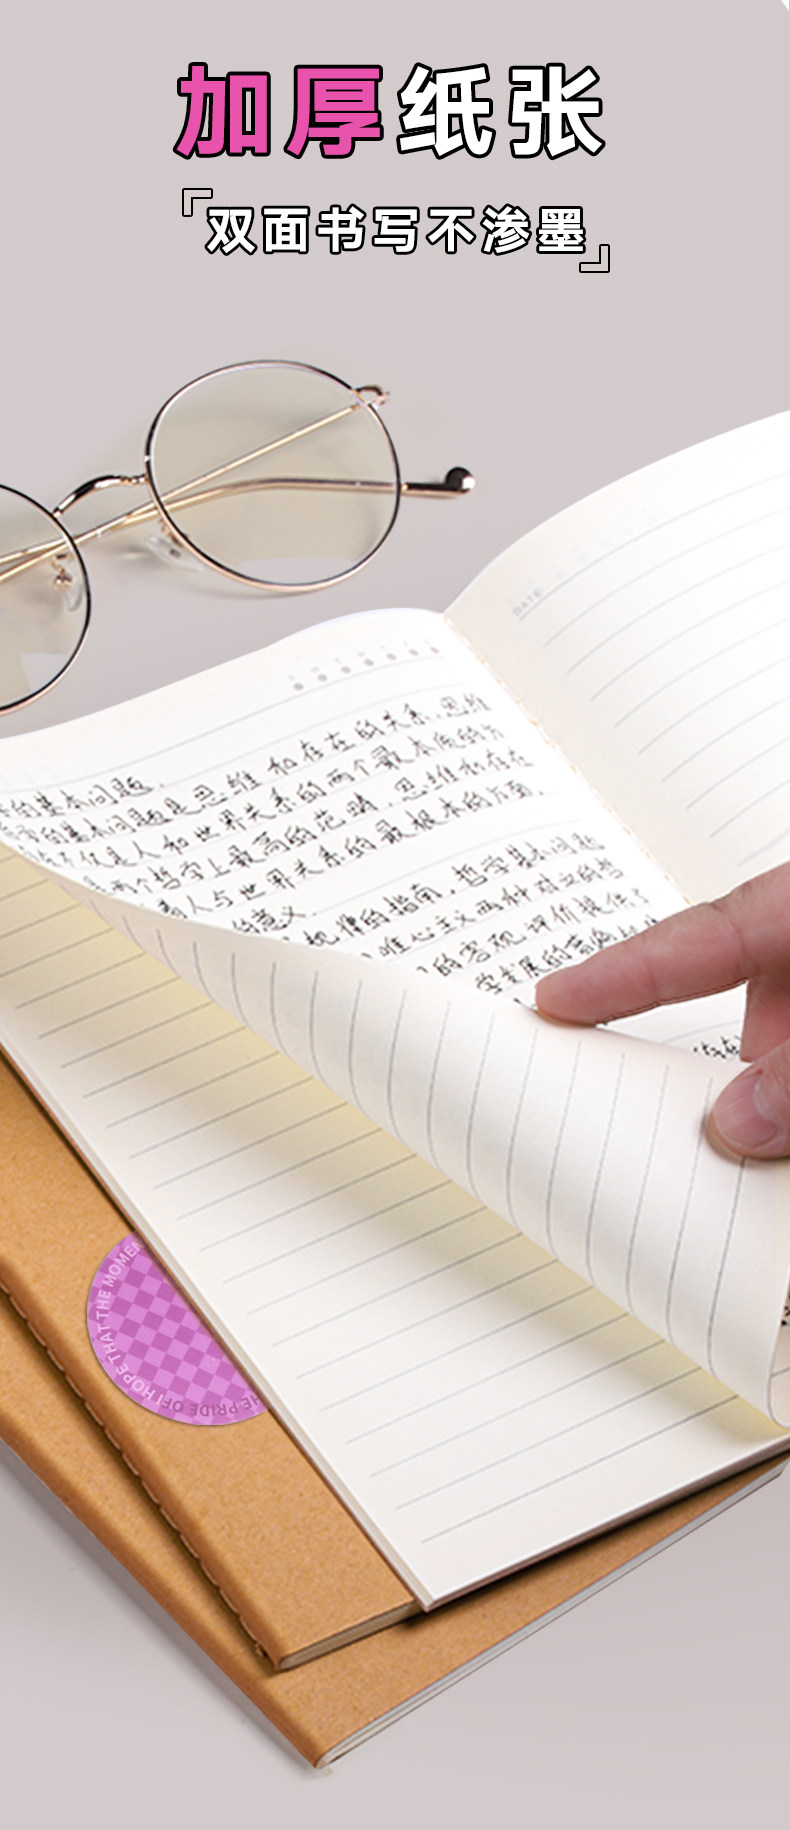 加厚纸张
双面书写不渗墨
DATE:
的基本问题.
学的基本问题是思维和存在的关系.思维
是人和世界关系的两个最本质的方
是两个哲学上最高的范畴.思维和存在
着人与世界关系的最根本的方面.
的意义.
规律的指南.哲学基本问题
唯心主义两种对立的哲
的客观评价提供了
学发展的
THAT THE MOMEN
I HOPE
THE PRIDE OF